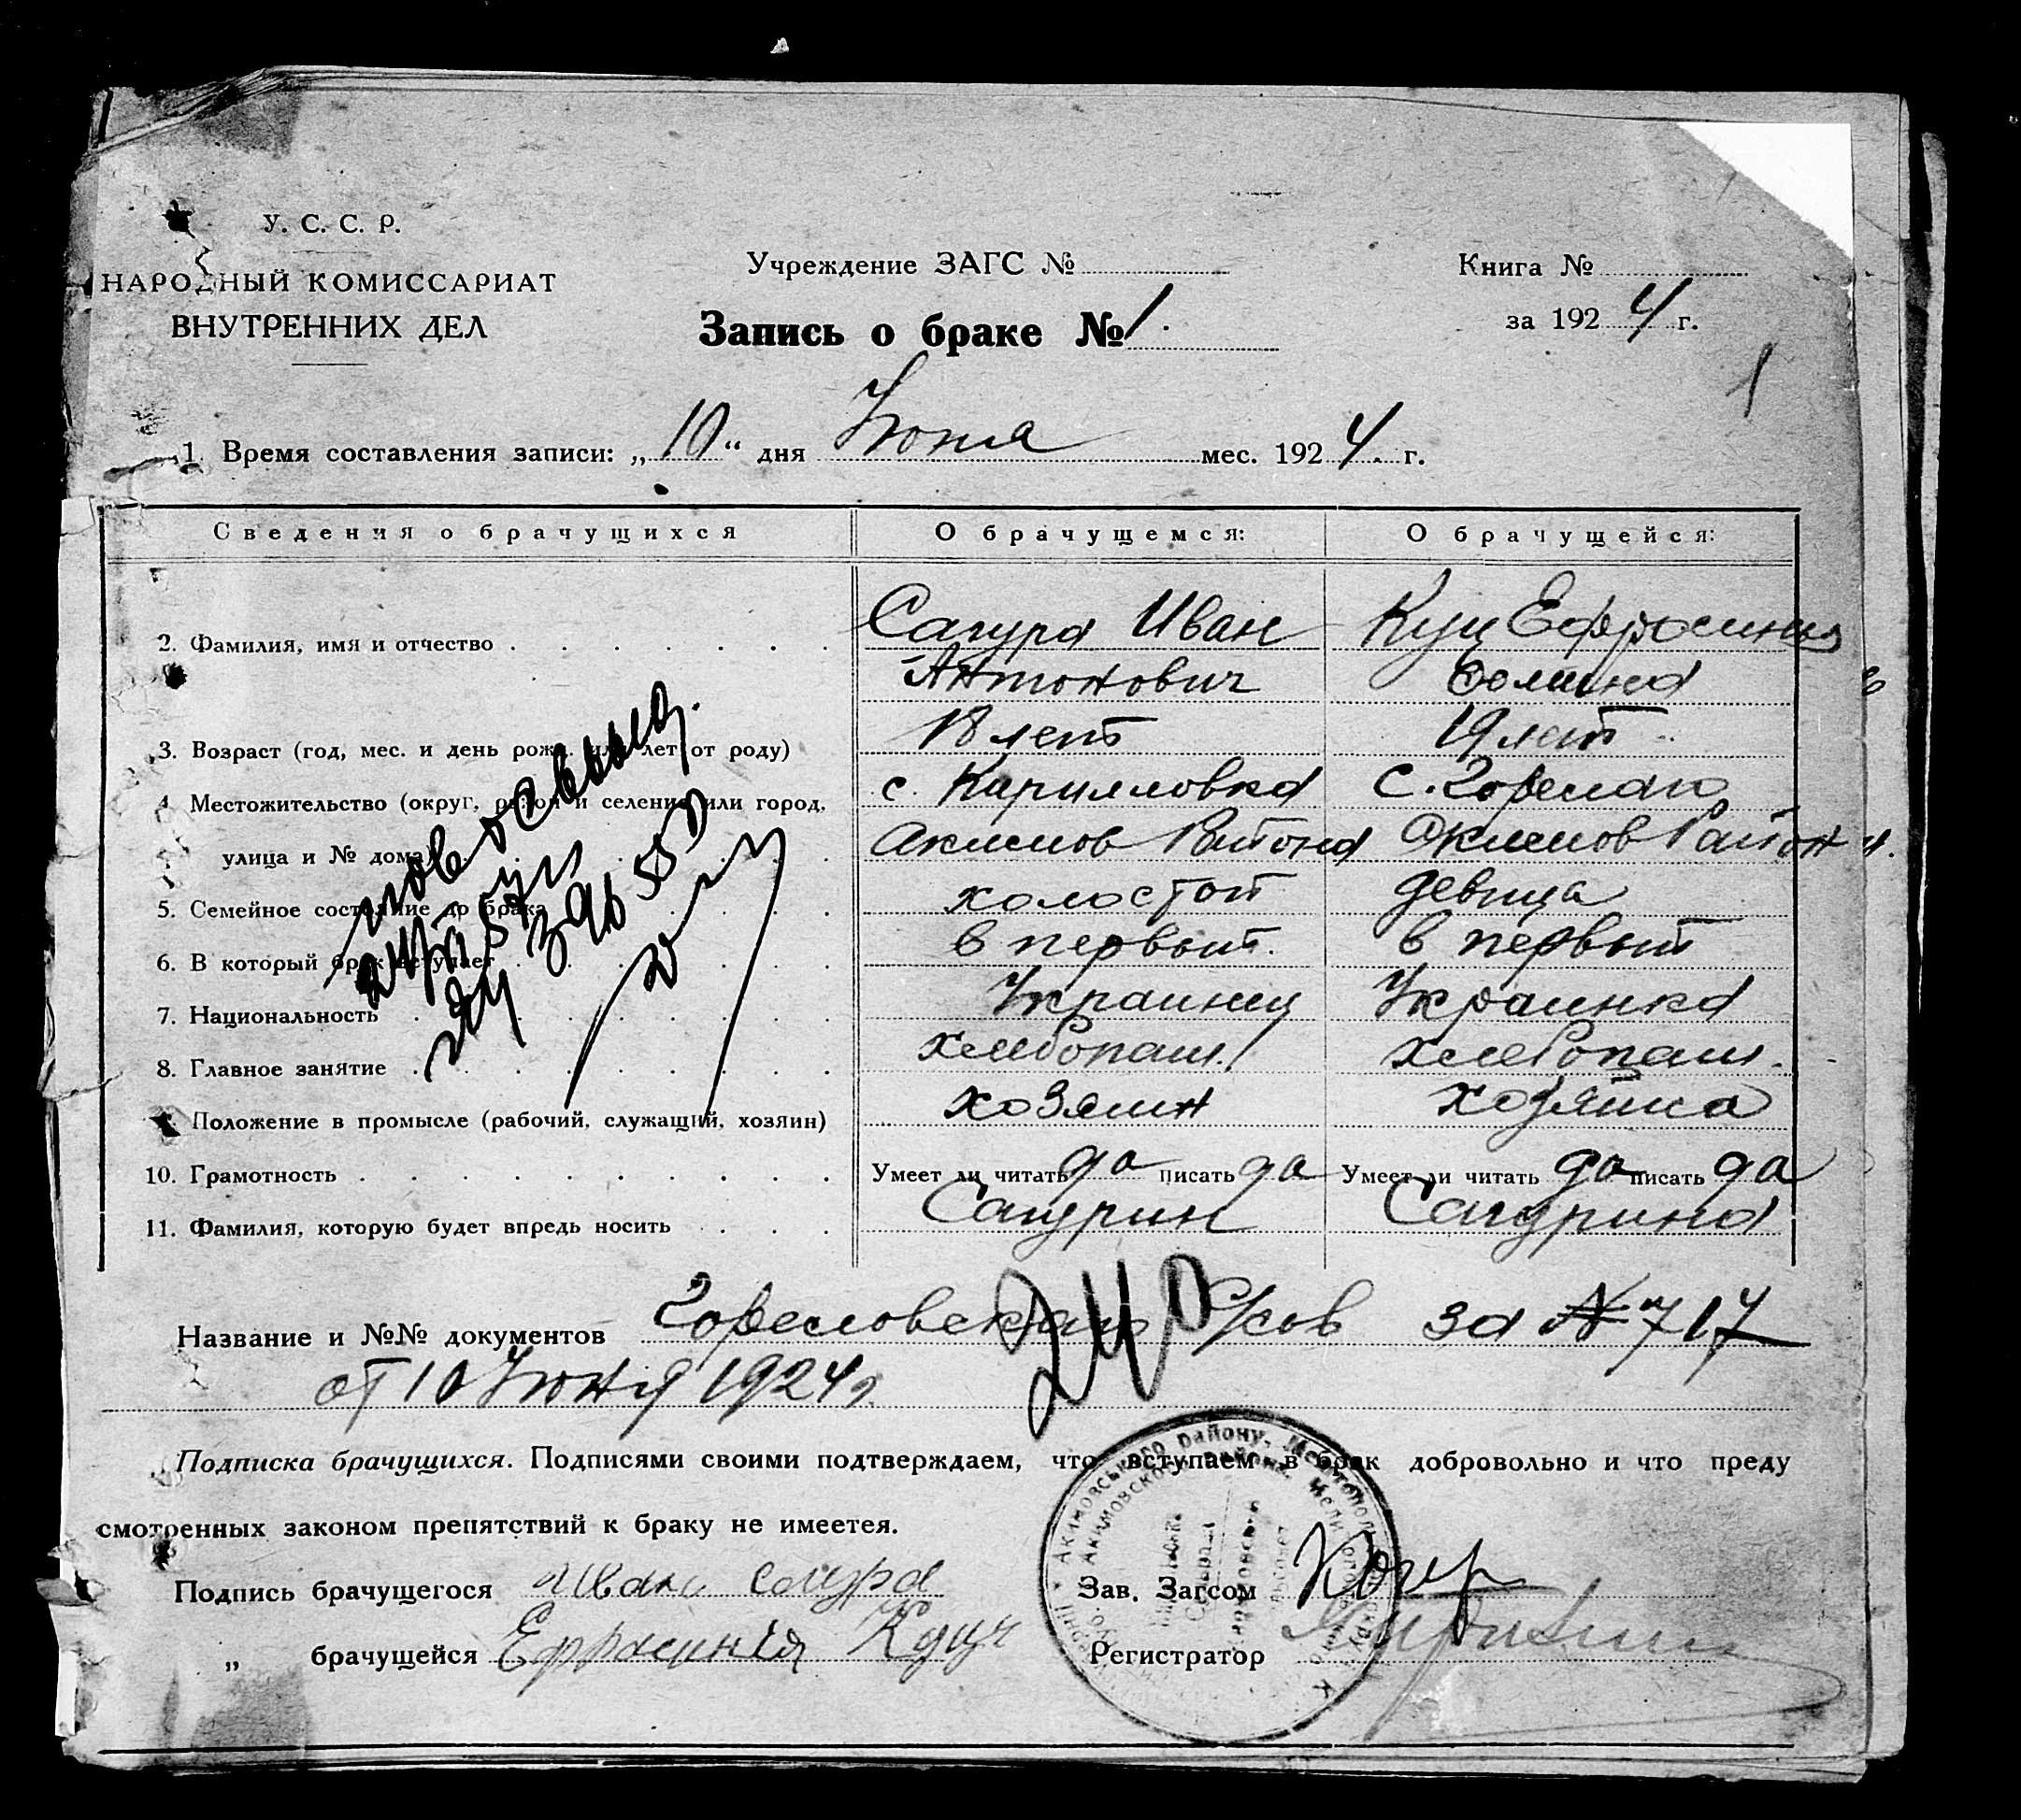 У. С. С. Р.
НАРОДНЫЙ КОМИССАРИАТ
ВНУТРЕННИХ ДЕЛ
Учреждение ЗАГС №
Книга №
за 1924 г.
Запись о браке № 1.
1
1. Время составления записи: „10“ дня Июня мес. 1924. г.
Сведения о брачущихся О брачущемся: О брачущейся:
2. Фамилия, имя и отчество Сагура Иван Куц Ефросиния
Антонович
3. Возраст (год, мес. и день рожд. или лет от роду) 18 лет 19 лет
4. Местожительство (округ, район и селение или город, с. Кирилловка с. Горелаго
улица и № дома) Акимов Района Акимов Район
5. Семейное состояние до брака холостой девица
6. В который брак вступает в первый. в первый
7. Национальность Украинец Украинка
8. Главное занятие хлебопаш. хлебопаш.
9. Положение в промысле (рабочий, служащий, хозяин) хозяин хозяйка
10. Грамотность Умеет ли читать да писать да Умеет ли читать да писать да
11. Фамилия, которую будет впредь носить Сагурин Сагурина
Название и №№ документов Гореловская за № 717
от 10 Июня 1924 г.
Подписка брачущихся. Подписями своими подтверждаем, что вступаем в брак добровольно и что преду
смотренных законом препятствий к браку не имеетея.
Подпись брачущегося Иван Сагура
Зав. Загсом
„ брачущейся Ефросинія Куц
Регистратор